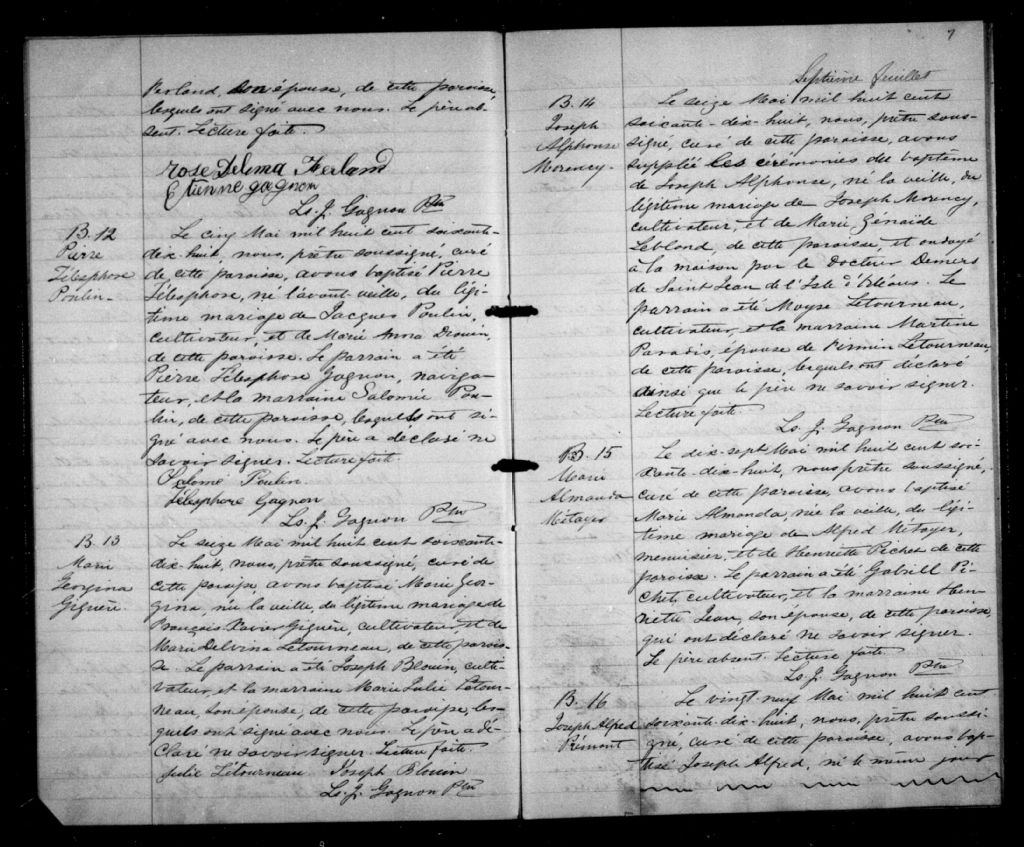 Ferland, son épouse, de cette paroisse,
lesquels ont signé avec nous. Le père ab-
sent. Lecture faite.
rose Delima Ferland
Etienne gagnon
Ls. J. Gagnon Ptre
B. 12
Pierre
Télesphore
Poulin
Le cinq Mai mil huit cent soixante-
dix-huit, nous, prêtre soussigné, curé
de cette paroisse, avons baptisé Pierre
Télesphore, né l'avant-veille, du légi-
time mariage de Jacques Poulin,
cultivateur, et de Marie Anna Drouin,
de cette paroisse. Le parrain a été
Pierre Télesphore Gagnon, naviga-
teur, et la marraine Salomée Pou-
lin, de cette paroisse, lesquels ont si-
gné avec nous. Le père a déclaré ne
savoir signer. Lecture faite.
Salomé Poulin
Télesphore Gagnon
Ls. J. Gagnon Ptre
B. 13
Marie
Georgina
Giguère
Le seize Mai mil huit cent soixante-
dix-huit, nous, prêtre soussigné, curé de
cette paroisse, avons baptisé Marie Geor-
gina, née la veille, du légitime mariage de
François-Xavier Giguère, cultivateur, et de
Marie Delvina Letourneau, de cette parois-
se. Le parrain a été Joseph Blouin, culti-
vateur, et la marraine Marie Julie Letour-
neau, son épouse, de cette paroisse, les-
quels ont signé avec nous. Le père a dé-
claré ne savoir signer. Lecture faite.
Julie Létourneau Joseph Blouin
Ls. J. Gagnon Ptre
7
Septième feuillet
B. 14
Joseph
Alphonse
Morency
Le seize Mai mil huit cent
soixante-dix-huit, nous, prêtre sous-
signé, curé de cette paroisse, avons
suppléé les cérémonies du baptême
de Joseph Alphonse, né la veille, du
légitime mariage de Joseph Morency,
cultivateur, et de Marie Zénaïde
Leblond, de cette paroisse, et ondoyé
à la maison par le Docteur Demers
de Saint Jean de l'Isle d'Orléans. Le
parrain a été Moyse Letourneau,
cultivateur, et la marraine Martine
Paradis, épouse de Firmin Letourneau,
de cette paroisse, lesquels ont déclaré
ainsi que le père ne savoir signer.
Lecture faite.
Ls. J. Gagnon Ptre
B. 15
Marie
Almanda
Métayer
Le dix-sept Mai mil huit cent soi-
xante-dix-huit, nous prêtre soussigné,
curé de cette paroisse, avons baptisé
Marie Almanda, née la veille, du légi-
time mariage de Alfred Métayer,
menuisier, et de Henriette Pichet de cette
paroisse. Le parrain a été Gabriell Pi-
chet, cultivateur, et la marraine Hen-
riette Jean, son épouse, de cette paroisse,
qui ont déclaré ne savoir signer.
Le père absent. Lecture faite
Ls. J. Gagnon Ptre
B. 16
Joseph Alfred
Pémont
Le vingt neuf Mai mil huit cent
soixante-dix-huit, nous, prêtre soussi-
gné, curé de cette paroisse, avons bap-
tisé Joseph Alfred, né le même jour